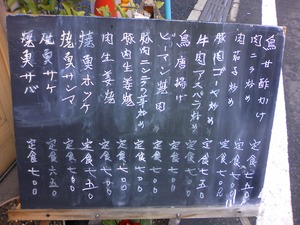 鳥甘酢かけ 定食七五〇
肉ニラ炒め 定食七〇〇
肉茄子炒め 定食七〇〇
豚肉ゴーヤ炒め 定食七〇〇
牛肉アスパラ炒め 定食七五〇
鳥唐揚げ 定食七〇〇
ピーマン 肉 定食七〇〇
豚肉ニンニクの芽炒め 定食七〇〇
豚肉生姜焼 定食七〇〇
肉生姜焼 定食七〇〇
焼魚ホッケ 定食七〇〇
焼魚サンマ 定食七五〇
焼魚サケ 定食六五〇
焼魚サバ 定食七〇〇